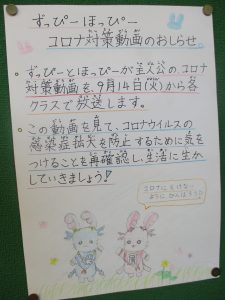 ずっぴーほっぴー
コロナ対策動画のおしらせ
・ずっぴーとほっぴーが主人公のコロナ
対策動画を、9月14日(火)から各
クラスで放送します。
・この動画を見て、コロナウイルスの
感染症拡大を防止するために気を
つけることを再確認し、生活に生か
していきましょう!
コロナにまけない
ようにがんばろう!